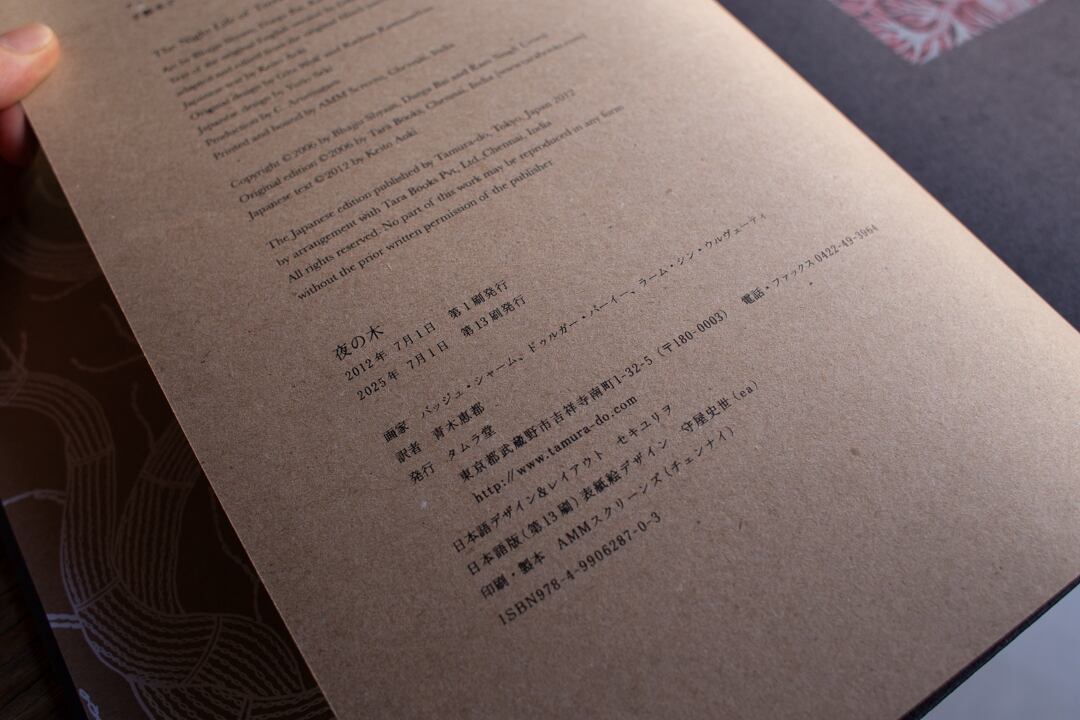 The Night Life of Trees
Copyright ©2006 by Bhajju Shyam, Durga Bai and Ram Singh Urveti
Original edition ©2006 by Tara Books, Chennai, India
Japanese text ©2012 by Keito Aoki
The Japanese edition published by Tamura-do, Tokyo, Japan 2012
by arrangement with Tara Books Pvt, Ltd, Chennai, India
All rights reserved. No part of this work may be reproduced in any form
without the prior written permission of the publisher
夜の木
2012年 7月1日 第1刷発行
2025年 7月1日 第13刷発行
画家 バッジュ・シャーム、ドゥルガー・バーイー、ラーム・シン・ウルヴェーティ
訳者 青木恵都
発行 タムラ堂
東京都武蔵野市吉祥寺南町1-32-5（〒180-0003） 電話・ファックス0422-49-3964
http://www.tamura-do.com
日本語デザイン&レイアウト セキユリヲ
日本語版（第13刷）表紙絵デザイン 守屋史世（ea）
印刷・製本 AMMスクリーンズ（チェンナイ）
ISBN978-4-9906287-0-3